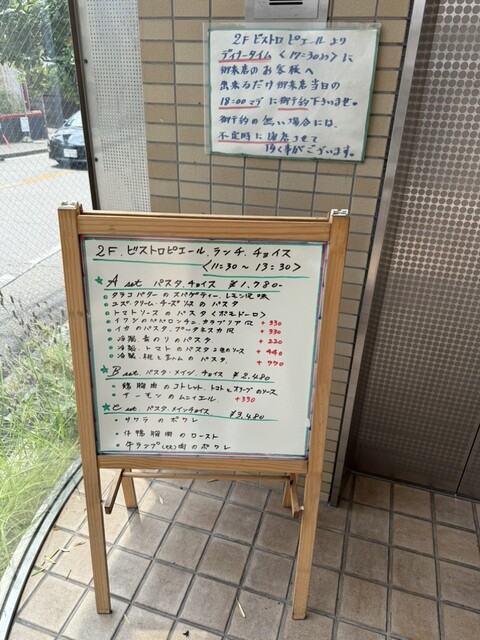 2F ビストロ ピエール より
ディナータイム 〈17=30ヨリ〉に
御来店のお客様へ
出来るだけ御来店当日の
18:00マデに御予約下さいませ。
御予約の無い場合には、
不定時に
頂く事がございます。
2F. ビストロピエール. ランチ. チョイス
〈11=30 ~ 13=30〉
★ A set パスタ. チョイス ¥1.780-
• タラコバターのスパゲティー. レモン風味
• チーズソースのパスタ
• トマトソースのパスタ〈ポモドーロ〉
• イワシのペペロンチーノ. カラブリア風 +330
• イカのパスタ. プッタネスカ風 +330
• 冷製. 青のりのパスタ +220
• 冷製. トマトのパスタ 2色のソース +440
• 冷製. 桃と生ハムのパスタ. +770
★ B set. パスタ・メイン. チョイス ¥2.480
• 鶏胸肉のコトレット. トマトとオリーブのソース
• サーモンのムニエル +330
★ C set パスタ.メインチョイス ¥3,480
• サワラのポワレ
• 仔鴨胸肉のロースト
• 牛ランプ(もも)肉のポワレ